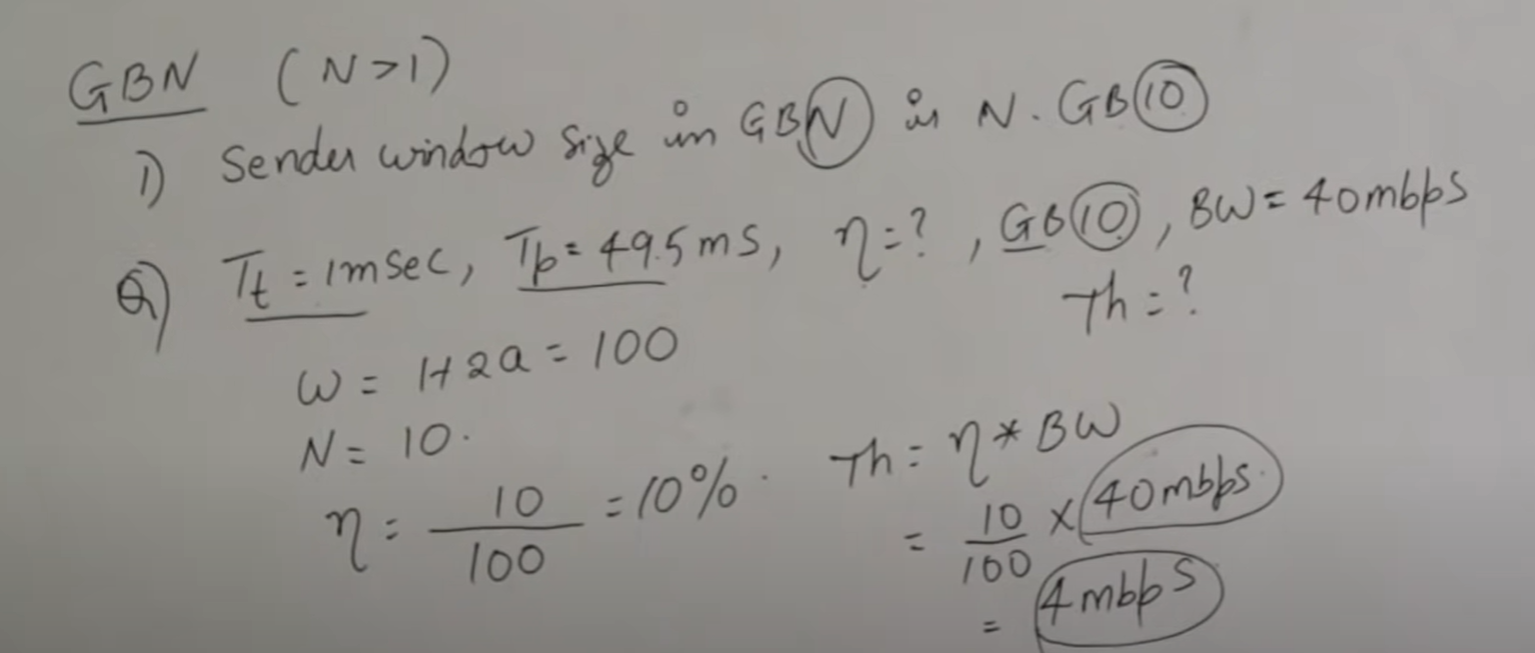 GBN (N>1)
1) Sender window size in GBN is N. GB10
Q) Tt = 1msec, Tp = 49.5ms, η=?, GB10, BW= 40mbps
Th=?
W = 1+2a = 100
N = 10.
η = 10/100 = 10%.
Th = η * BW
= 10/100 × 40mbps.
= 4mbps